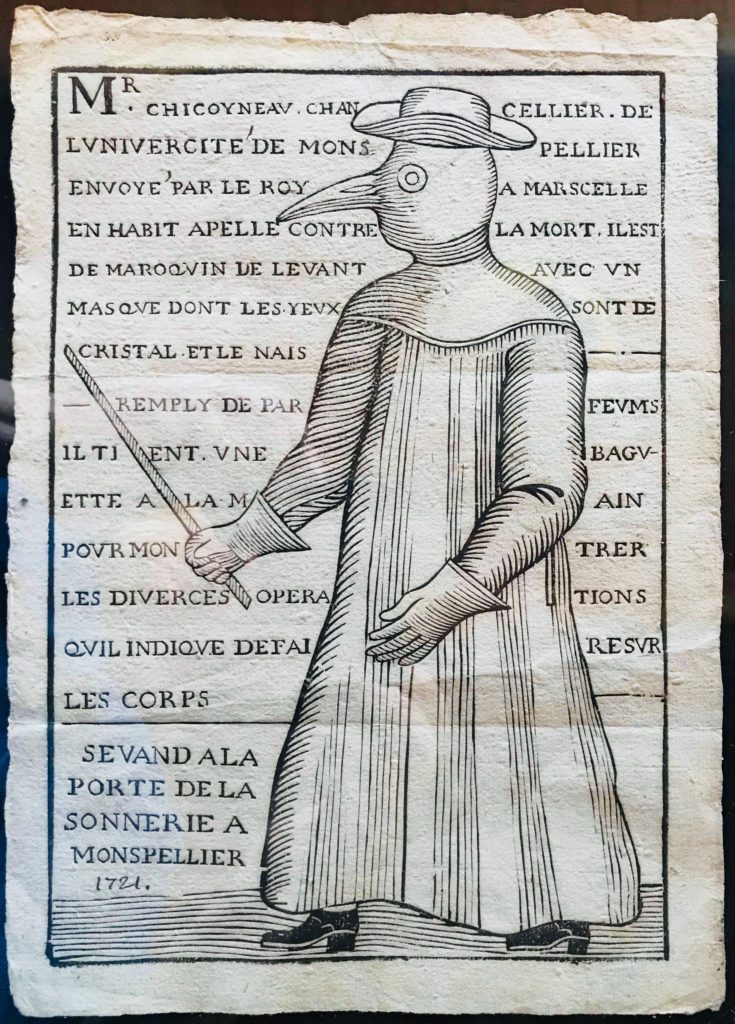 MR. CHICOYNEAV. CHANCELLIER. DE
LVNIVERCITÉ DE MONSPELLIER
ENVOYÉ PAR LE ROY A MARSCELLE
EN HABIT APELLE CONTRE LA MORT. ILEST
DE MAROQVIN DE LEVANT AVEC VN
MASQVE DONT LES.YEUX SONT DE
CRISTAL. ET LE NAIS
REMPLY DE PARFEVMS
IL TIENT. VNE BAGV-
ETTE A LA MAIN
POVR MONTRER
LES DIVERCES OPERATIONS
QVIL INDIQVE DEFAIRESVR
LES CORPS
SEVAND ALA
PORTE DE LA
SONNERIE A
MONSPELLIER
1721.